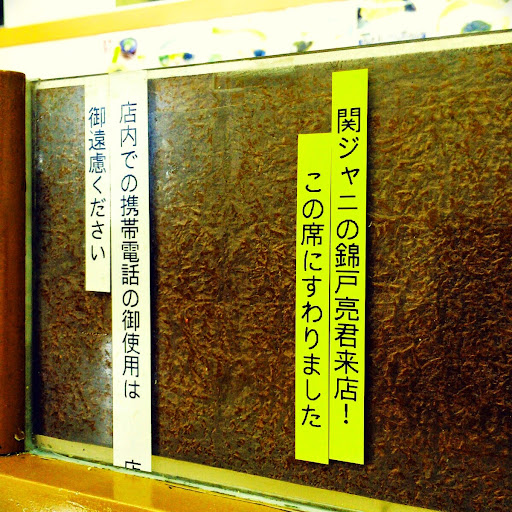 関ジャニの錦戸亮君来店!
この席にすわりました
店内での携帯電話の御使用は
御遠慮ください